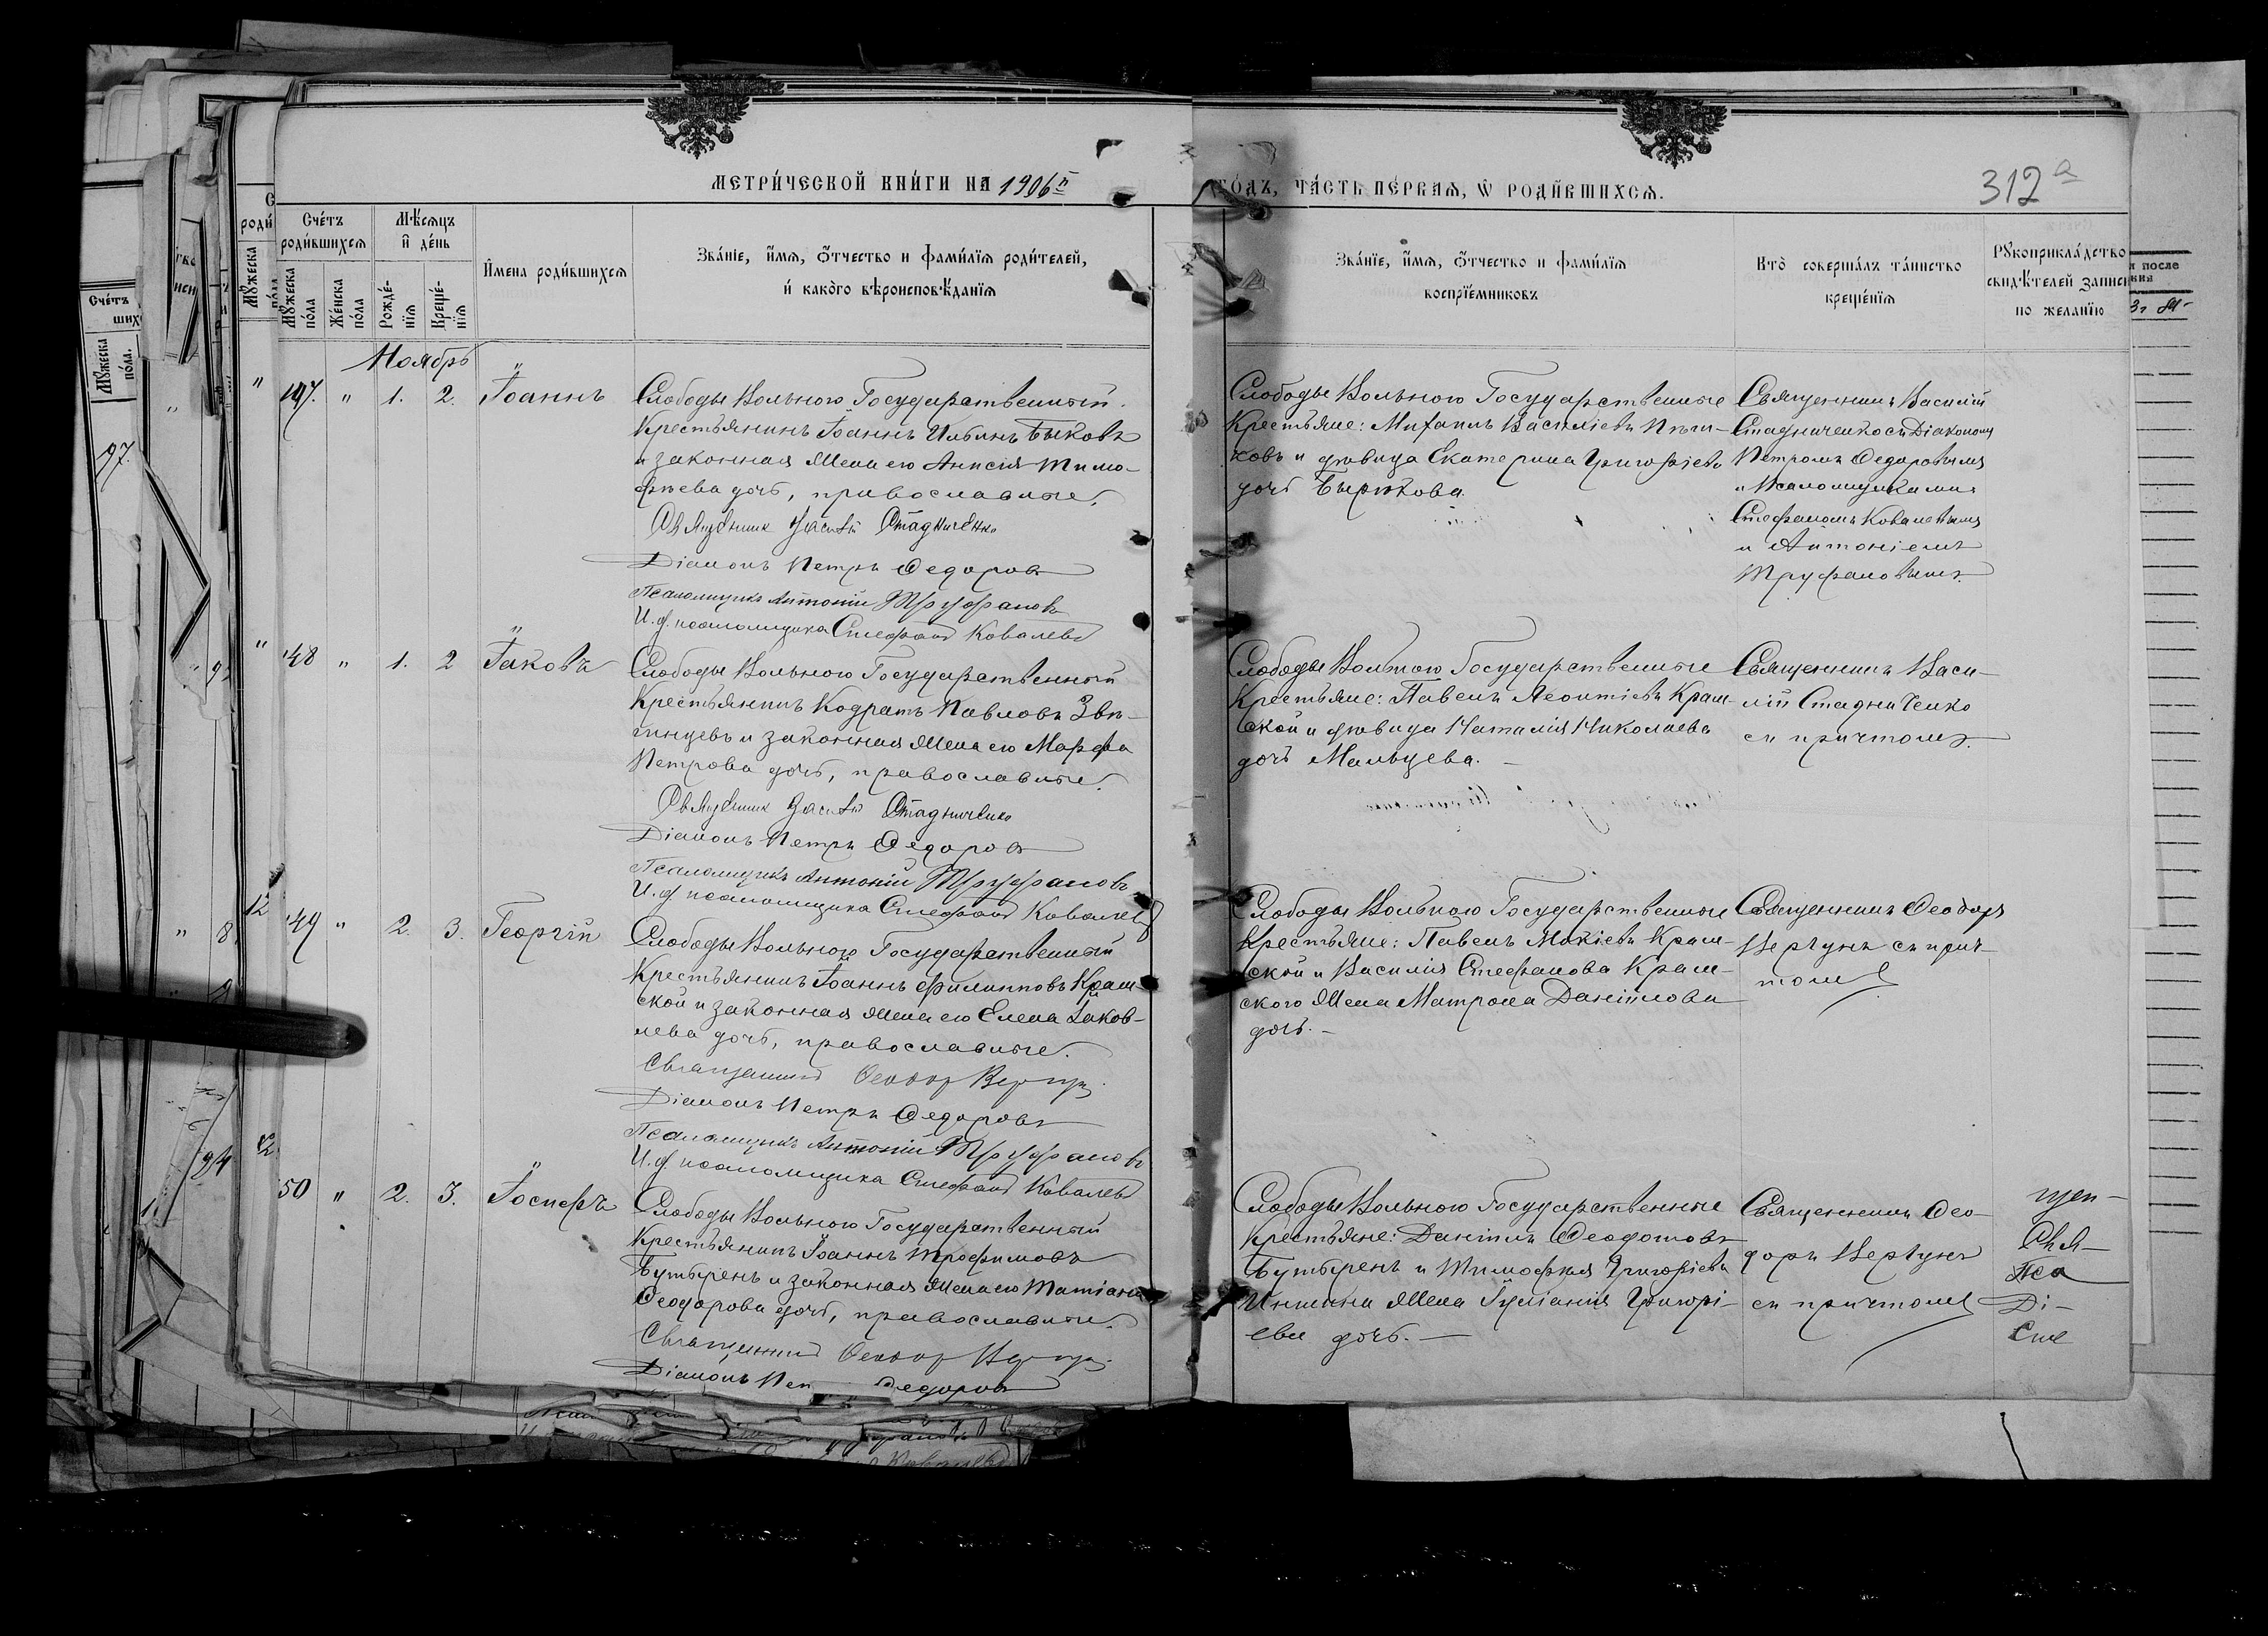 МЕТРИЧЕСКОЙ КНИГИ НА 1906й
ГОДЪ, ЧАСТЬ ПЕРВАЯ, Ѡ РОДИВШИХСЯ.
312 а
Счетъ родившихся
Мѣсяцъ и день
Мужеска пола
Женска пола
Рожденія
Крещенія
Имена родившихся
Званіе, имя, отчество и фамилія родителей,
и какого вѣроисповѣданія
Званіе, имя, отчество и фамилія
воспріемниковъ
Кто совершалъ таинство
крещенія
Рукоприкладство
свидѣтелей записи
по желанію
Ноябрь
" 1. 2. Іоаннъ
Слободы Вольного Государственный
Крестьянинъ Іоаннъ Ильинъ Быковъ
и законная жена его Анисія Тимо-
феева дочь, православные.
Священник Василій Стадниченко
Діаконъ Петръ Федоровъ
Псаломщикъ Антоній Труфановъ
И. д. псаломщика Стефанъ Ковалевъ
Слободы Вольного Государственные
Крестьяне: Михаилъ Василіевъ
и дѣвица Екатерина Григоріева
дочь Бирюкова.
Священникъ Василій
Стадниченко съ Діакономъ
Петромъ Федоровымъ
и Псаломщиками
Стефаномъ Ковалевымъ
и Антоніемъ
Труфановымъ.
48 " 1. 2 Іаковъ
Слободы Вольного Государственный
Крестьянинъ Кодратъ Павловъ Звя-
гинцевъ и законная жена его Марфа
Петрова дочь, православные.
Священник Василій Стадниченко
Діаконъ Петръ Федоровъ
Псаломщикъ Антоній Труфановъ
И. д. псаломщика Стефанъ Ковалевъ
Слободы Вольного Государственные
Крестьяне: Павелъ Леонтіевъ Крам-
ской и дѣвица Наталія Николаева
дочь Мальцева.
Священникъ Васи-
лій Стадниченко
съ причтомъ.
49 " 2. 3. Георгій
Слободы Вольного Государственный
Крестьянинъ Іоаннъ Филипповъ Крам-
ской и законная жена его Елена Іаков-
лева дочь, православные.
Священникъ Феодор Вергун
Діаконъ Петръ Федоровъ
Псаломщикъ Антоній Труфановъ
И. д. псаломщика Стефанъ Ковалевъ
Слободы Вольного Государственные
Крестьяне: Павелъ Мокіевъ Крам-
ской и Василія Стефанова Крам-
ского жена Матрона Даніилова
дочь.
Священникъ Феодоръ
Вергунъ съ прич-
томъ
50 " 2. 3. Іосифъ
Слободы Вольного Государственный
Крестьянинъ Іоаннъ Трофимовъ
Бутыринъ и законная жена его Татіана
Феодорова дочь, православные.
Священникъ Феодор Вергун
Діаконъ Петръ Федоровъ
Слободы Вольного Государственные
Крестьяне: Даніилъ Феодотовъ
Бутыринъ и Тимофея Григоріева
жена Іуліанія Григорі-
ева дочь.
Священникъ Фео-
доръ Вергунъ
съ причтомъ
щен-
Свя-
Пса
Ді-
Сте